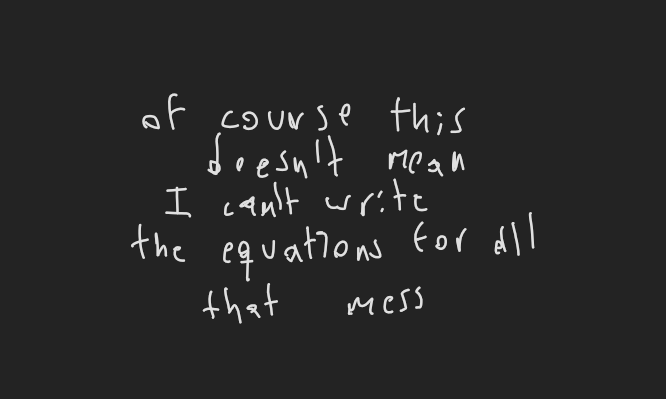 of course this
doesn't mean
I can't write
the equations for all
that mess